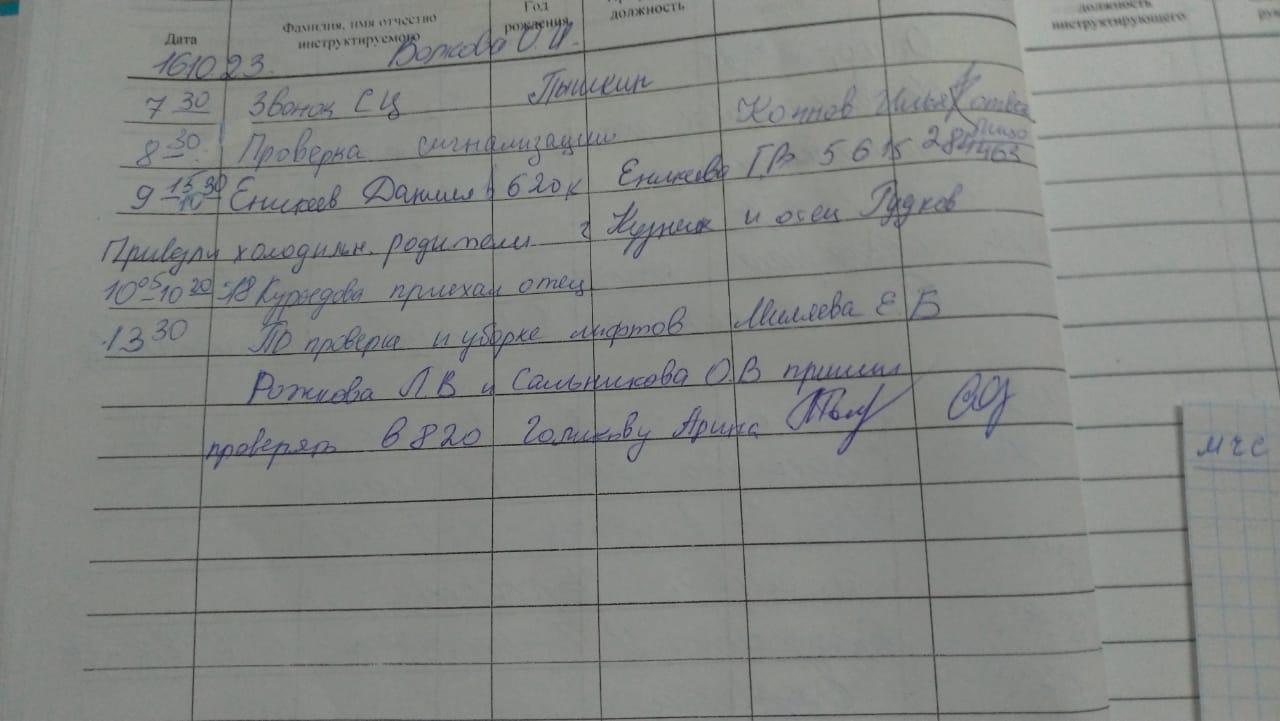 Дата
Фамилия, имя отчество инструктируемого
Год рождения
должность
должность инструктирующего
161023. Волкова О.И.
7 30 Звонок СЦ Пышкин
8 30 Проверка сигнализации Коннов Илья отвез
9 15 - 10 30 Еникеев Даниил 620к Еникеева Г.В 5615 284463
Привезли холодильн. родители г Кузнецк и отец Гудков
10 05 - 10 20 приехал отец
13 30 ТО проверка и уборке лифтов Миляева Е Б
Рожкова Л.В и Сальникова О.В пришли
проверять в 820 Голикову Арина
мчс